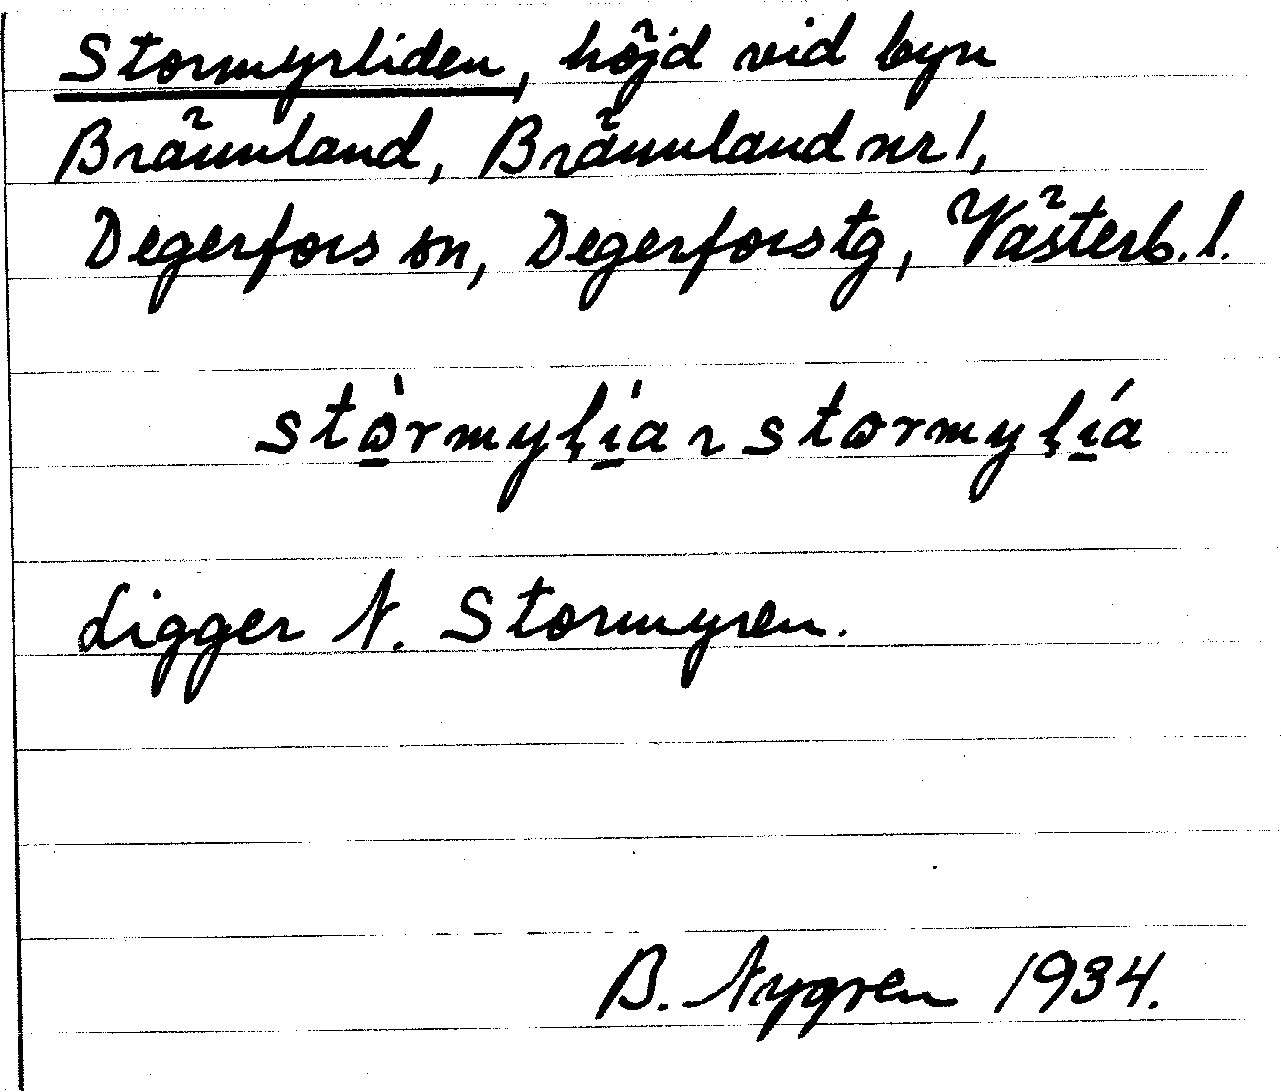 Stormyrliden, höjd vid byn
Brännland, Brännland nr 1,
Degerfors sn, Degerfors tg, Västerb. l.
stò̱rmyļi̱̍a ~ stormyļí̱a
Ligger N. Stormyren.
B. Nygren 1934.